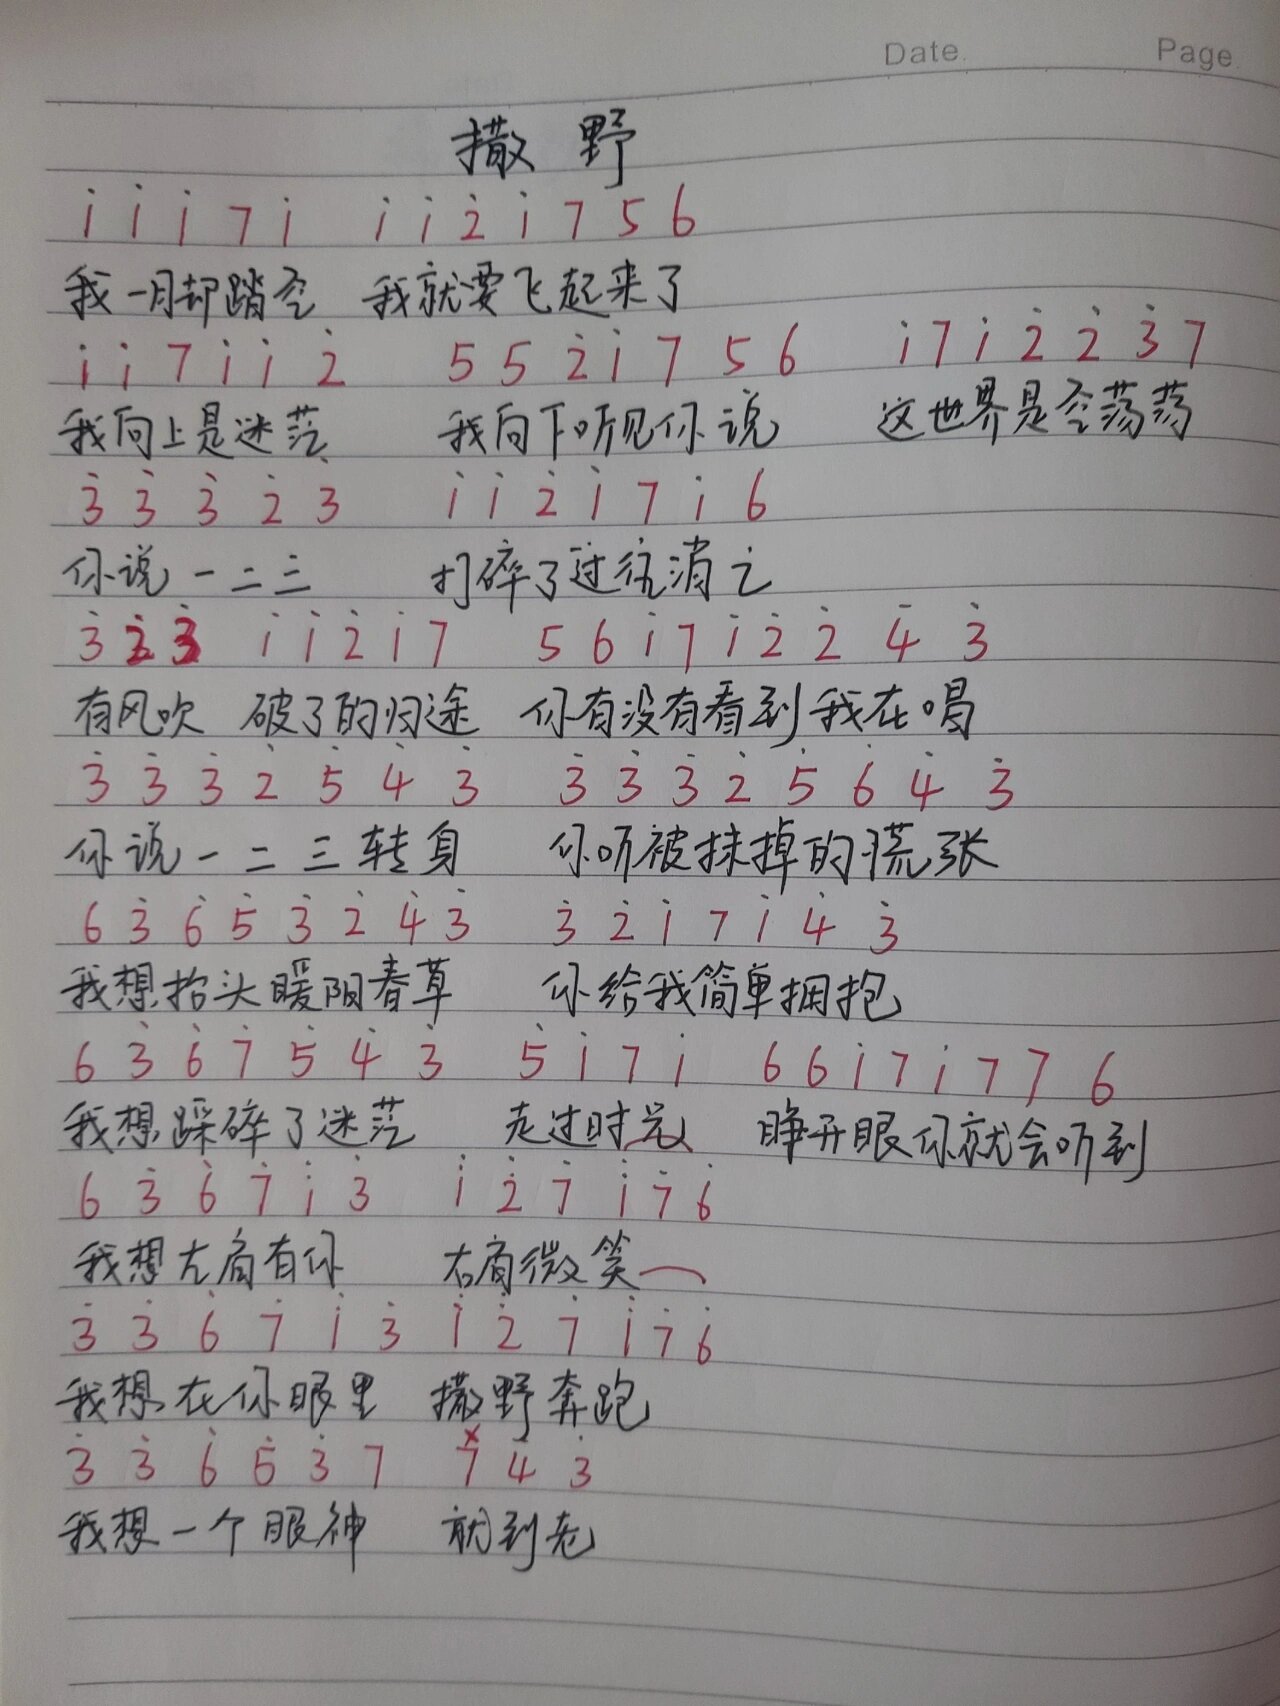 Date. Page.
撒野
i̇ i̇ i̇ 7 i̇ i̇ i̇ 2̇ i̇ 7 5 6
我一脚踏空 我就要飞起来了
i̇ i̇ 7 i̇ i̇ 2̇ 5 5 2̇ i̇ 7 5 6 i̇ 7 i̇ 2̇ 2̇ 3̇ 7
我向上是迷茫 我向下听见你说 这世界是空荡荡
3̇ 3̇ 3̇ 2̇ 3̇ i̇ i̇ 2̇ i̇ 7 i̇ 6
你说一二三 打碎了过往消亡
3̇ 2̇ 3̇ i̇ i̇ 2̇ i̇ 7 5 6 i̇ 7 i̇ 2̇ 2̇ 4̇ 3̇
有风吹 破了的归途 你有没有看到我在唱
3̇ 3̇ 3̇ 2̇ 5̇ 4̇ 3̇ 3̇ 3̇ 3̇ 2̇ 5̇ 6̇ 4̇ 3̇
你说一二三转身 你听被抹掉的慌张
6 3̇ 6̇ 5̇ 3̇ 2̇ 4̇ 3̇ 3̇ 2̇ i̇ 7 i̇ 4̇ 3̇
我想抬头暖阳春草 你给我简单拥抱
6 3̇ 6̇ 7̇ 5̇ 4̇ 3̇ 5̇ i̇ 7 i̇ 6 6 i̇ 7 i̇ 7 7 6
我想踩碎了迷茫 走过时光 睁开眼你就会听到
6 3̇ 6̇ 7̇ i̇ 3̇ i̇ 2̇ 7̇ i̇ 7̇ 6̇
我想左肩有你 右肩微笑
3̇ 3̇ 6̇ 7̇ i̇ 3̇ i̇ 2̇ 7̇ i̇ 7̇ 6̇
我想在你眼里 撒野奔跑
3̇ 3̇ 6̇ 5̇ 3̇ 7 7 4 3̇
我想一个眼神 就到老